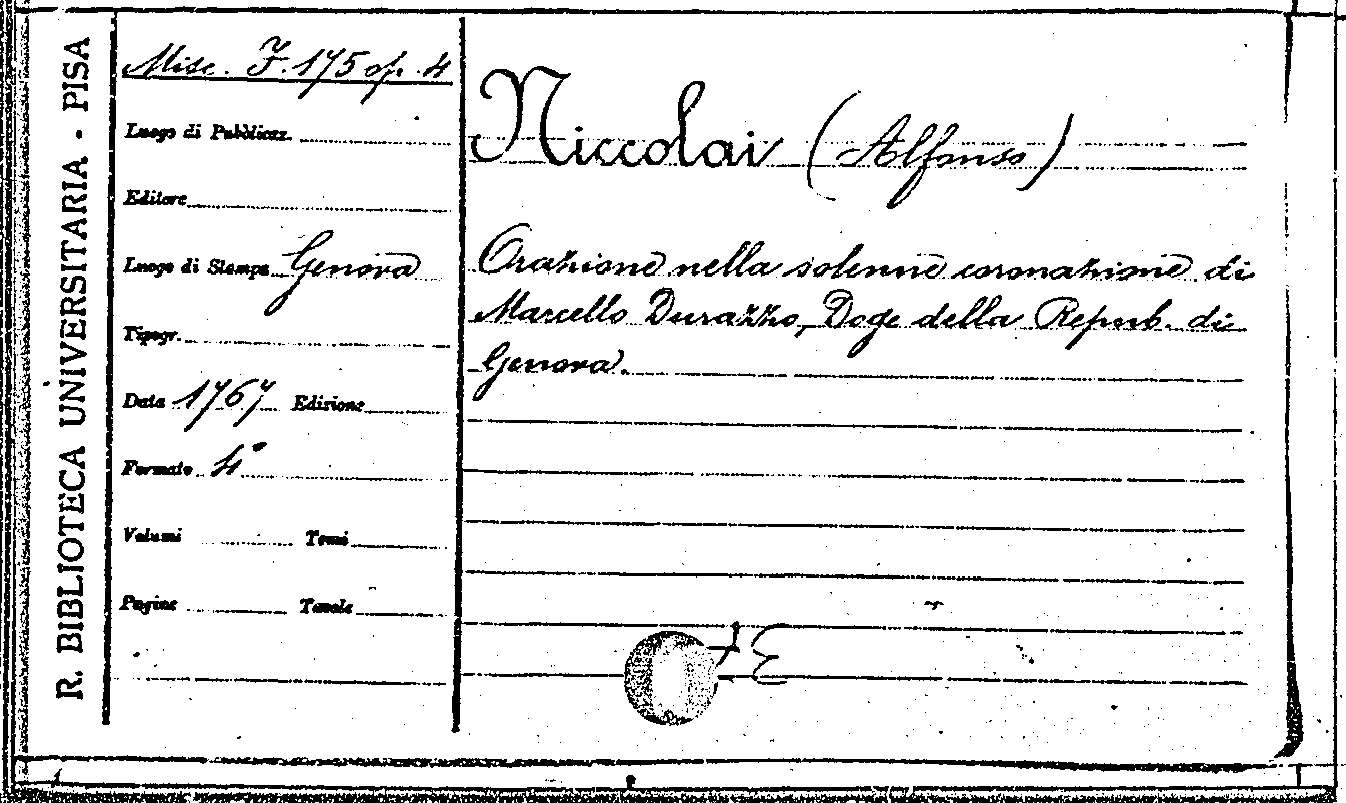 R. BIBLIOTECA UNIVERSITARIA - PISA
Misc. F. 175 op. 4
Luogo di Pubblicaz.
Editore
Luogo di Stampa Genova
Tipogr.
Data 1767 Edizione
Formato 4°
Volumi Tomi
Pagine Tavole
Niccolai (Alfonso)
Orazione nella solenne coronazione di
Marcello Durazzo, Doge della Repub. di
Genova.